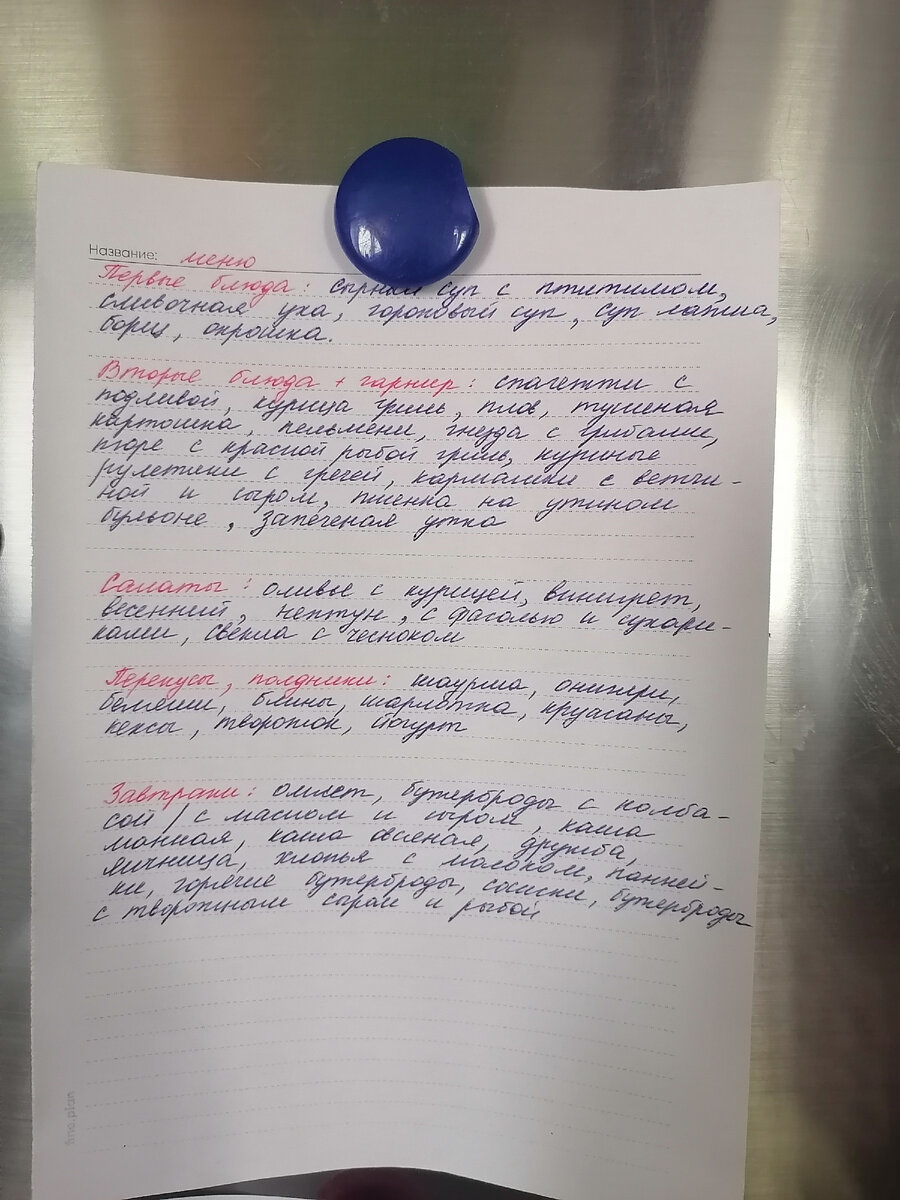 Название: меню
Первые блюда: сырный суп с птитимом,
сливочная уха, гороховый суп, суп лапша,
борщ, окрошка.
Вторые блюда + гарнир: спагетти с
подливой, курица гриль, плов, тушеная
картошка, пельмени, гнезда с грибами,
пюре с красной рыбой гриль, куриные
рулетики с гречей, кармашки с ветчи-
ной и сыром, пшенка на утином
бульоне, запеченая утка
Салаты: оливье с курицей, винигрет,
весенний, нептун, с фасолью и сухари-
ками, свекла с чесноком
Перекусы, полдники: шаурма, онигири,
беляши, блины, шарлотка, круасаны,
кексы, творожок, йогурт
Завтраки: омлет, бутерброды с колба-
сой / с маслом и сыром, каша
манная, каша овсеная, дружба,
яичница, хлопья с молоком, панкей-
ки, горячие бутерброды, сосиски, бутерброды
с творожным сыром и рыбой
fine.plan